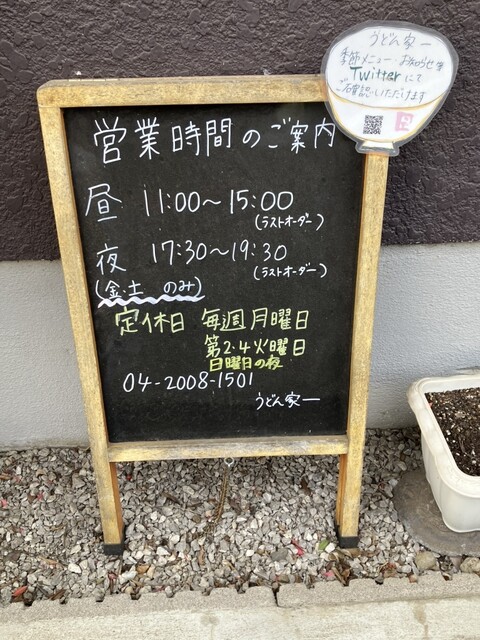 うどん家一
季節メニュー・お知らせ等
Twitterにて
ご確認いただけます
営業時間のご案内
昼 11:00～15:00
(ラストオーダー)
夜 17:30～19:30
(ラストオーダー)
(金・土 のみ)
定休日 毎週月曜日
第2・4火曜日
日曜日の夜
04-2008-1501
うどん家一